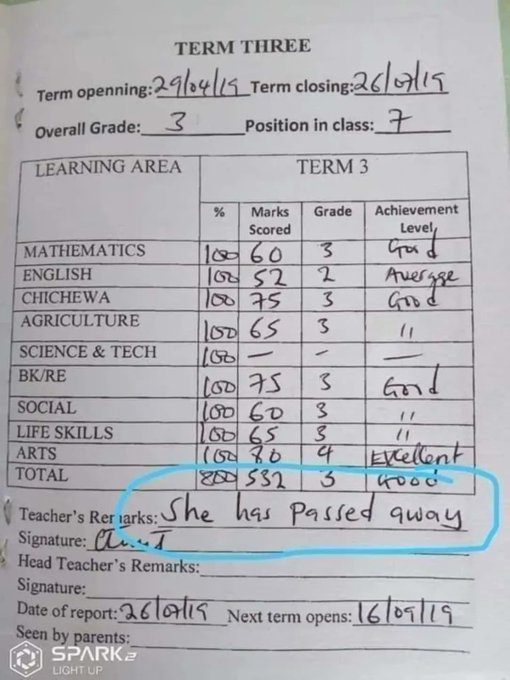 TERM THREE
Term openning: 29/04/19 Term closing: 26/07/19
Overall Grade: 3 Position in class: 7
LEARNING AREA TERM 3
% Marks Scored Grade Achievement Level
MATHEMATICS 100 60 3 Good
ENGLISH 100 52 2 Average
CHICHEWA 100 75 3 Good
AGRICULTURE 100 65 3 "
SCIENCE & TECH 100 — – —
BK/RE 100 75 3 Good
SOCIAL 100 60 3 "
LIFE SKILLS 100 65 3 "
ARTS 100 80 4 Excellent
TOTAL 800 532 3 GOOD
Teacher's Remarks: She has passed away
Signature:
Head Teacher's Remarks:
Signature:
Date of report: 26/07/19 Next term opens: 16/09/19
Seen by parents:
SPARK 2
LIGHT UP